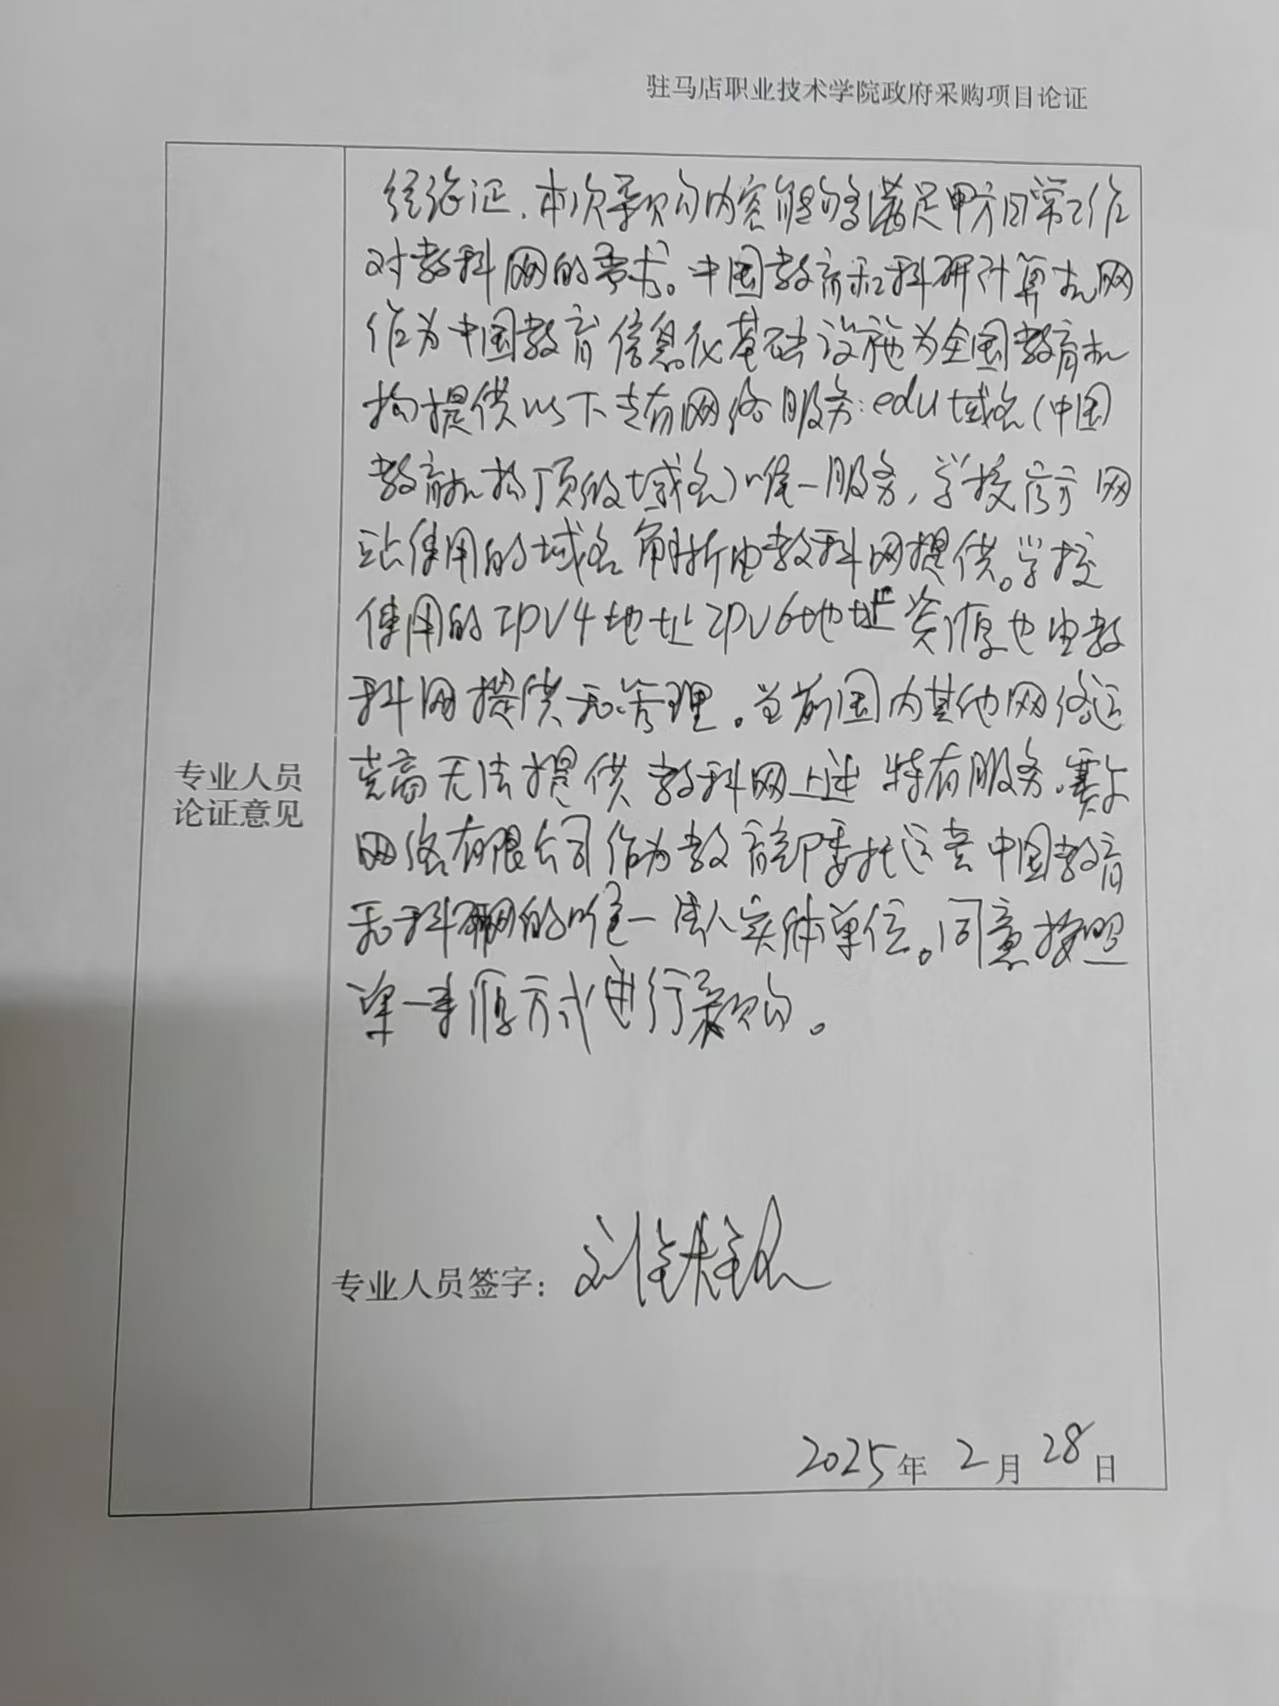 驻马店职业技术学院政府采购项目论证
经论证,本次采购内容能够满足甲方日常工作
对教科网的要求。中国教育和科研计算机网
作为中国教育信息化基础设施为全国教育机
构提供以下专有网络服务:edu域名(中国
教育机构顶级域名)唯一服务,学校官方网
站使用的域名解析由教科网提供。学校
使用的IPV4地址IPV6地址资源也由教
科网提供和管理。当前国内其他网络运
营商无法提供教科网上述特有服务。赛尔
网络有限公司作为教育部委托运营中国教育
和科研网的唯一法人实体单位。同意按照
单一来源方式进行采购。
专业人员
论证意见
专业人员签字:刘
2025年2月28日